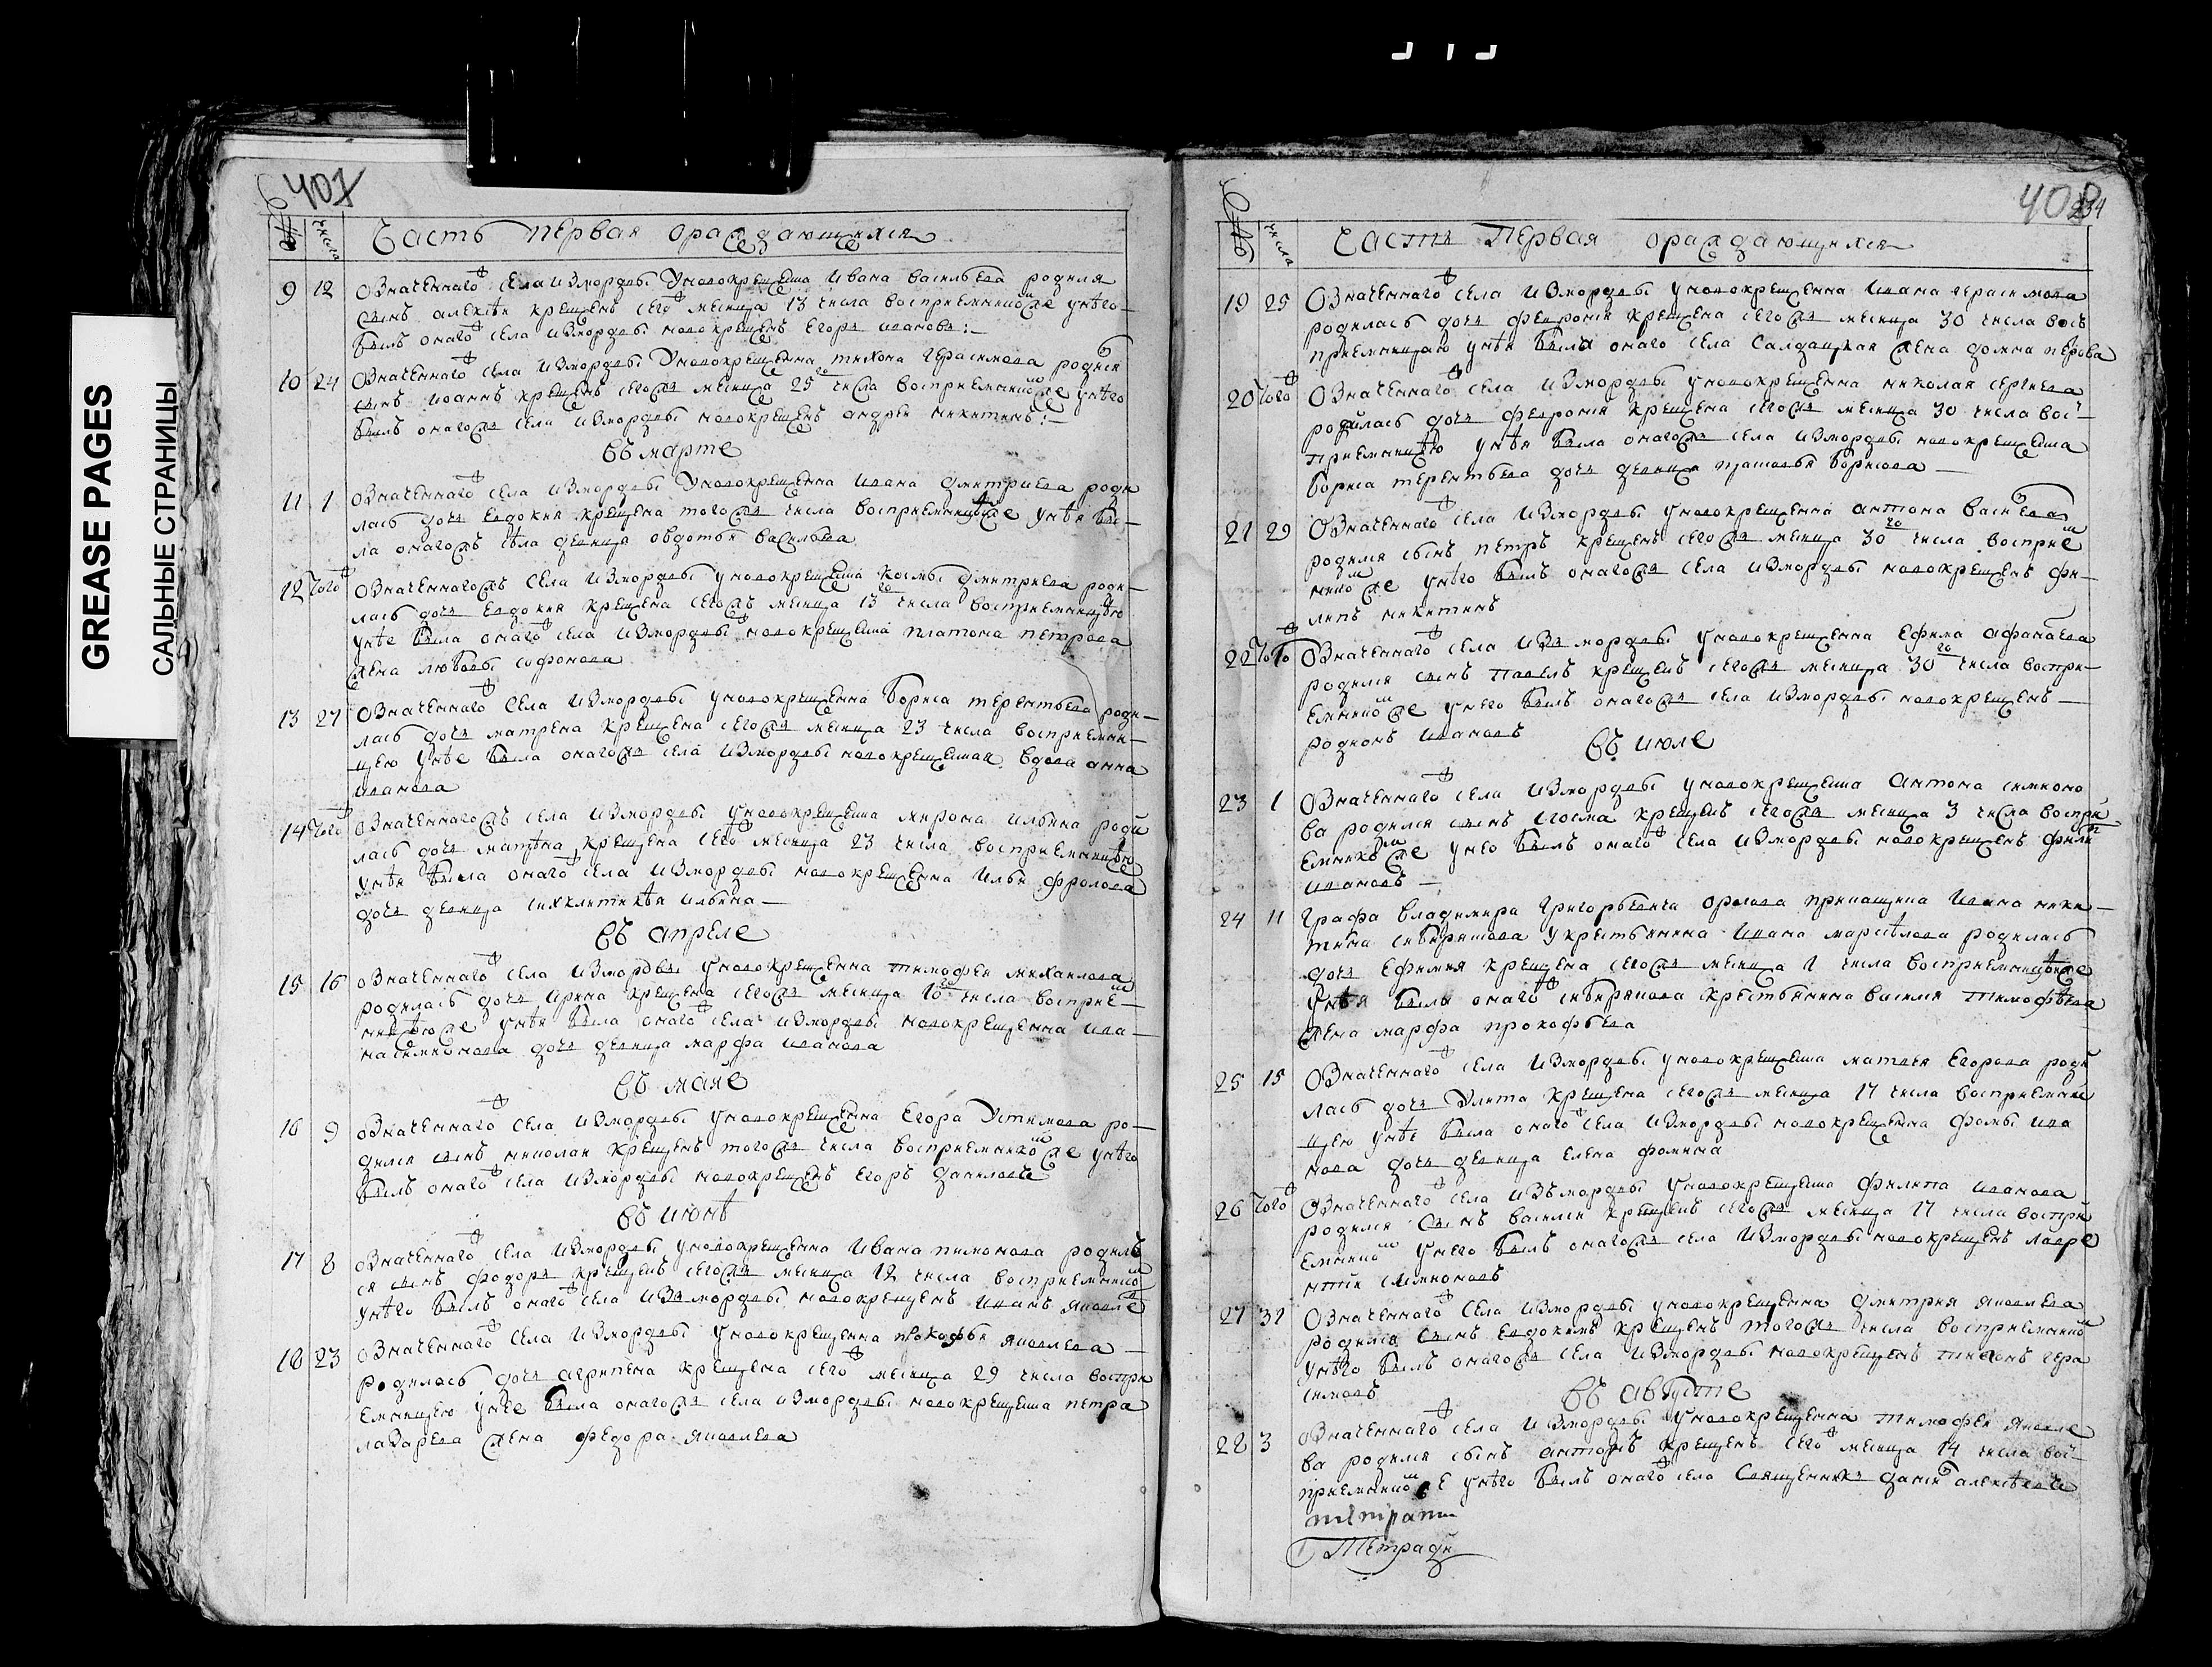 GREASE PAGES
САЛЬНЫЕ СТРАНИЦЫ
407
№ числа Часть первая ораждающихся
9 12 Означенного села Измордвы у новокрещена Ивана Васильева родился
сынъ Алексѣй крещенъ сего месяца 13 числа восприемникомже унѣго
былъ оного села Измордвы новокрещенъ Егоръ Ивановъ:
10 24 Означенного села Измордвы у новокрещенна Тихона Герасимова родися
сынъ Иоаннъ крещенъ сегожъ месяца 25го числа восприемникомже унѣго
былъ оногожъ села Измордвы новокрещенъ Андрей Никитинъ:
въ марте
11 1 Означенного села Измордвы у новокрещенна Ивана Дмитриева роди
лась дочь Евдокия крещена тогожъ числа восприемницеюже унѣя бы
ла оногожъ села девица Овдотья Васильева
12 того Означенногожъ села Измордвы у новокрещенна Космы Дмитриева роди
лась дочь Евдокия крещена сегожъ месяца 13го числа восприемницею
унѣе была оного села Измордвы новокрещена Платона Петрова
жена Любовь Софонова
13 27 Означенного села Измордвы у новокрещенна Бориса Терентьева роди
лась дочь Матрена крещена сегожъ месяца 23 числа восприемни
цею унѣе была оногожъ села Измордвы новокрещеная вдова Анна
Иванова
14 того Означенногожъ села Измордвы у новокрещена Мирона Ильина роди
лась дочь Матрена крещена сего месяца 23 числа восприемницею
унѣя была оного села Измордвы новокрещенна Ильи Фролова
дочь девица Ильина
въ апреле
15 16 Означенного села Измордвы у новокрещенна Тимофея Михайлова
родилась дочь Ирина крещена сегожъ месяца числа восприем
ницеюже унѣя была оного села Измордвы новокрещенна Ива
на Симионова дочь девица Марфа Иванова
въ мае
16 9 Означенного села Измордвы у новокрещенна Егора Устимова ро
дился сынъ Николай крещенъ тогожъ числа восприемникомже унѣго
былъ оного села Измордвы новокрещенъ Егоръ Даниловъ
въ июнѣ
17 8 Означенного села Измордвы у новокрещенна Ивана Пимонова родил
ся сынъ Фодоръ крещенъ сегожъ месяца 12 числа восприемникомъ
унѣго былъ оного села Измордвы новокрещенъ Иванъ Яковле
18 23 Означенного села Измордвы у новокрещенна Прокофья Яковлева
родилась дочь Агрипена крещена сего месяца 29 числа воспри
емницею унѣе была оногожъ села Измордвы новокрещена Петра
Лазарева жена Федора Яковлева
408
234
№ числа Часть Первая ораждающихся
19 25 Означенного села Измордвы у новокрещенна Ивана Герасимова
родилась дочь Феврония крещена сегожъ месяца 30 числа вось
приемницаю унѣя была оного села Салдацкая жена Домна Пѣрова
20 того Означенного села Измордвы у новокрещенна Николая Сергиева
родилась дочь Феврония крещена сегожъ месяца 30 числа вос
приемницею унѣя была оногожъ села Измордвы новокрещена
Бориса Терентьева дочь девица Прасковья Борисова
21 29 Означенного села Измордвы у новокрещенна Антона Васильева
родился сынъ Петръ крещенъ сегожъ месяца 30го числа восприем
никомже унѣго былъ оногожъ села Измордвы новокрещенъ Фи
липъ Никитинъ
22 того Означенного села Измордвы у новокрещенна Ефима Афанасева
родился сынъ Павелъ крещенъ сегожъ месяца 30го числа воспри
емникомже унего былъ оногожъ села Измордвы новокрещенъ
Родионъ Ивановъ
въ июле
23 1 Означенного села Измордвы у новокрещена Антона Симионо
ва родился сынъ Козма крещенъ сегожъ месяца 3 числа воспри
емникомже унео былъ оного села Измордвы новокрещенъ Филип
Ивановъ
24 11 Графа Владимира Григорьевича Орлова прикащика Ивана Ники
тина у крестьянина Ивана родилась
дочь Ефимия крещена сегожъ месяца числа восприемницеюже
унѣя была оного крестьянина Василия Тимофѣева
жена Марфа Прокофьева
25 15 Означенного села Измордвы у новокрещена Матвея Егорова роди
лась дочь Улита крещена сегожъ месяца 17 числа восприемни
цею унѣе была оного села Измордвы новокрещенна Фомы Ива
нова дочь девица Елена Фомина
26 того Означенного села Измордвы у новокрещена Филипа Иванова
родился сынъ Василей крещенъ сегожъ месяца 17 числа воспри
емникомъ унего былъ оногожъ села Измордвы новокрещенъ Лавре
нтий Симионовъ
27 31 Означенного села Измордвы у новокрещенна Дмитрия Яковлева
родился сынъ Евдокимъ крещенъ тогожъ числа восприемникомъ
унѣго былъ оногожъ села Измордвы новокрещенъ Тихонъ Гера
симовъ
въ августе
28 3 Означенного села Измордвы у новокрещенна Тимофея Яковле
ва родился сынъ Антонъ крещенъ сего месяца 14 числа вос
приемникомже унѣго былъ оного села Священникъ Данил Алексѣевъ
Тетради